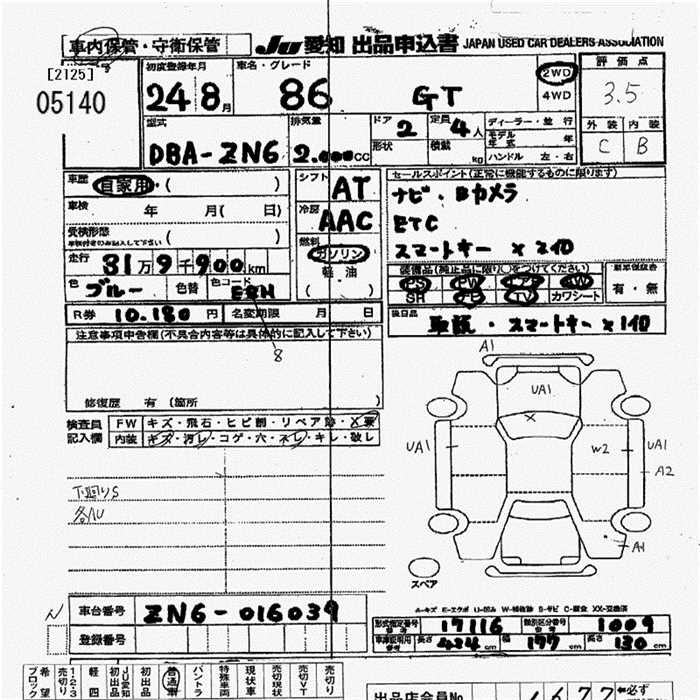 車内保管・守衛保管
JU 愛知 出品申込書 JAPAN USED CAR DEALERS ASSOCIATION
[2125]
05140
初度登録年月
24 8月
車名・グレード
86 GT
2WD
4WD
評価点
3.5
外装 内装
C B
型式
DBA-ZN6
排気量
2.000CC
ドア 2
形状
定員 4人
積載 kg
ディーラー・並行
モデル年式 年
ハンドル 左・右
車歴 自家用・( )
車検 年 月( 日)
受検形態 ( )
走行 31万9千900km
色 ブルー 色替 色コード
R券 10.180円 名変期限 月 日
シフト AT
冷房 AAC
燃料 ガソリン
軽油
( )
セールスポイント(正常に機能するものに限ります)
ナビ・Bカメラ
ETC
スマートキー
装備品(純正品に限り○をつけてください)
PS PW AW
SR TV カワシート
新車保証書
有・無
後日品 取説・スマートキー
注意事項申告欄(不具合内容等は具体的に記入して下さい)
8
修復歴 有(箇所 )
検査員記入欄
FW キズ・飛石・ヒビ割・リペア跡・X要
内装 キズ・汚レ・コゲ・穴・スレ・キレ・破レ
下回りS
各AU
A1
UA1
X
UA1
W2
UA1
A2
A1
スペア
A-キズ E-エクボ U-凹み W-補修跡 S-サビ C-腐食 XX-交換済
車台番号 ZN6-016039
登録番号
型式指定番号 17116 類別区分番号 1009
長さ 424cm 幅 177cm 高さ 130cm
希望ブロック
売切り
1・2・3
軽四
JU愛知初出品
初出品
普通車
バントラ
特殊車両
現状車
売切現状
売切VT
売切り
出品店会員No. 1677 ←必ず